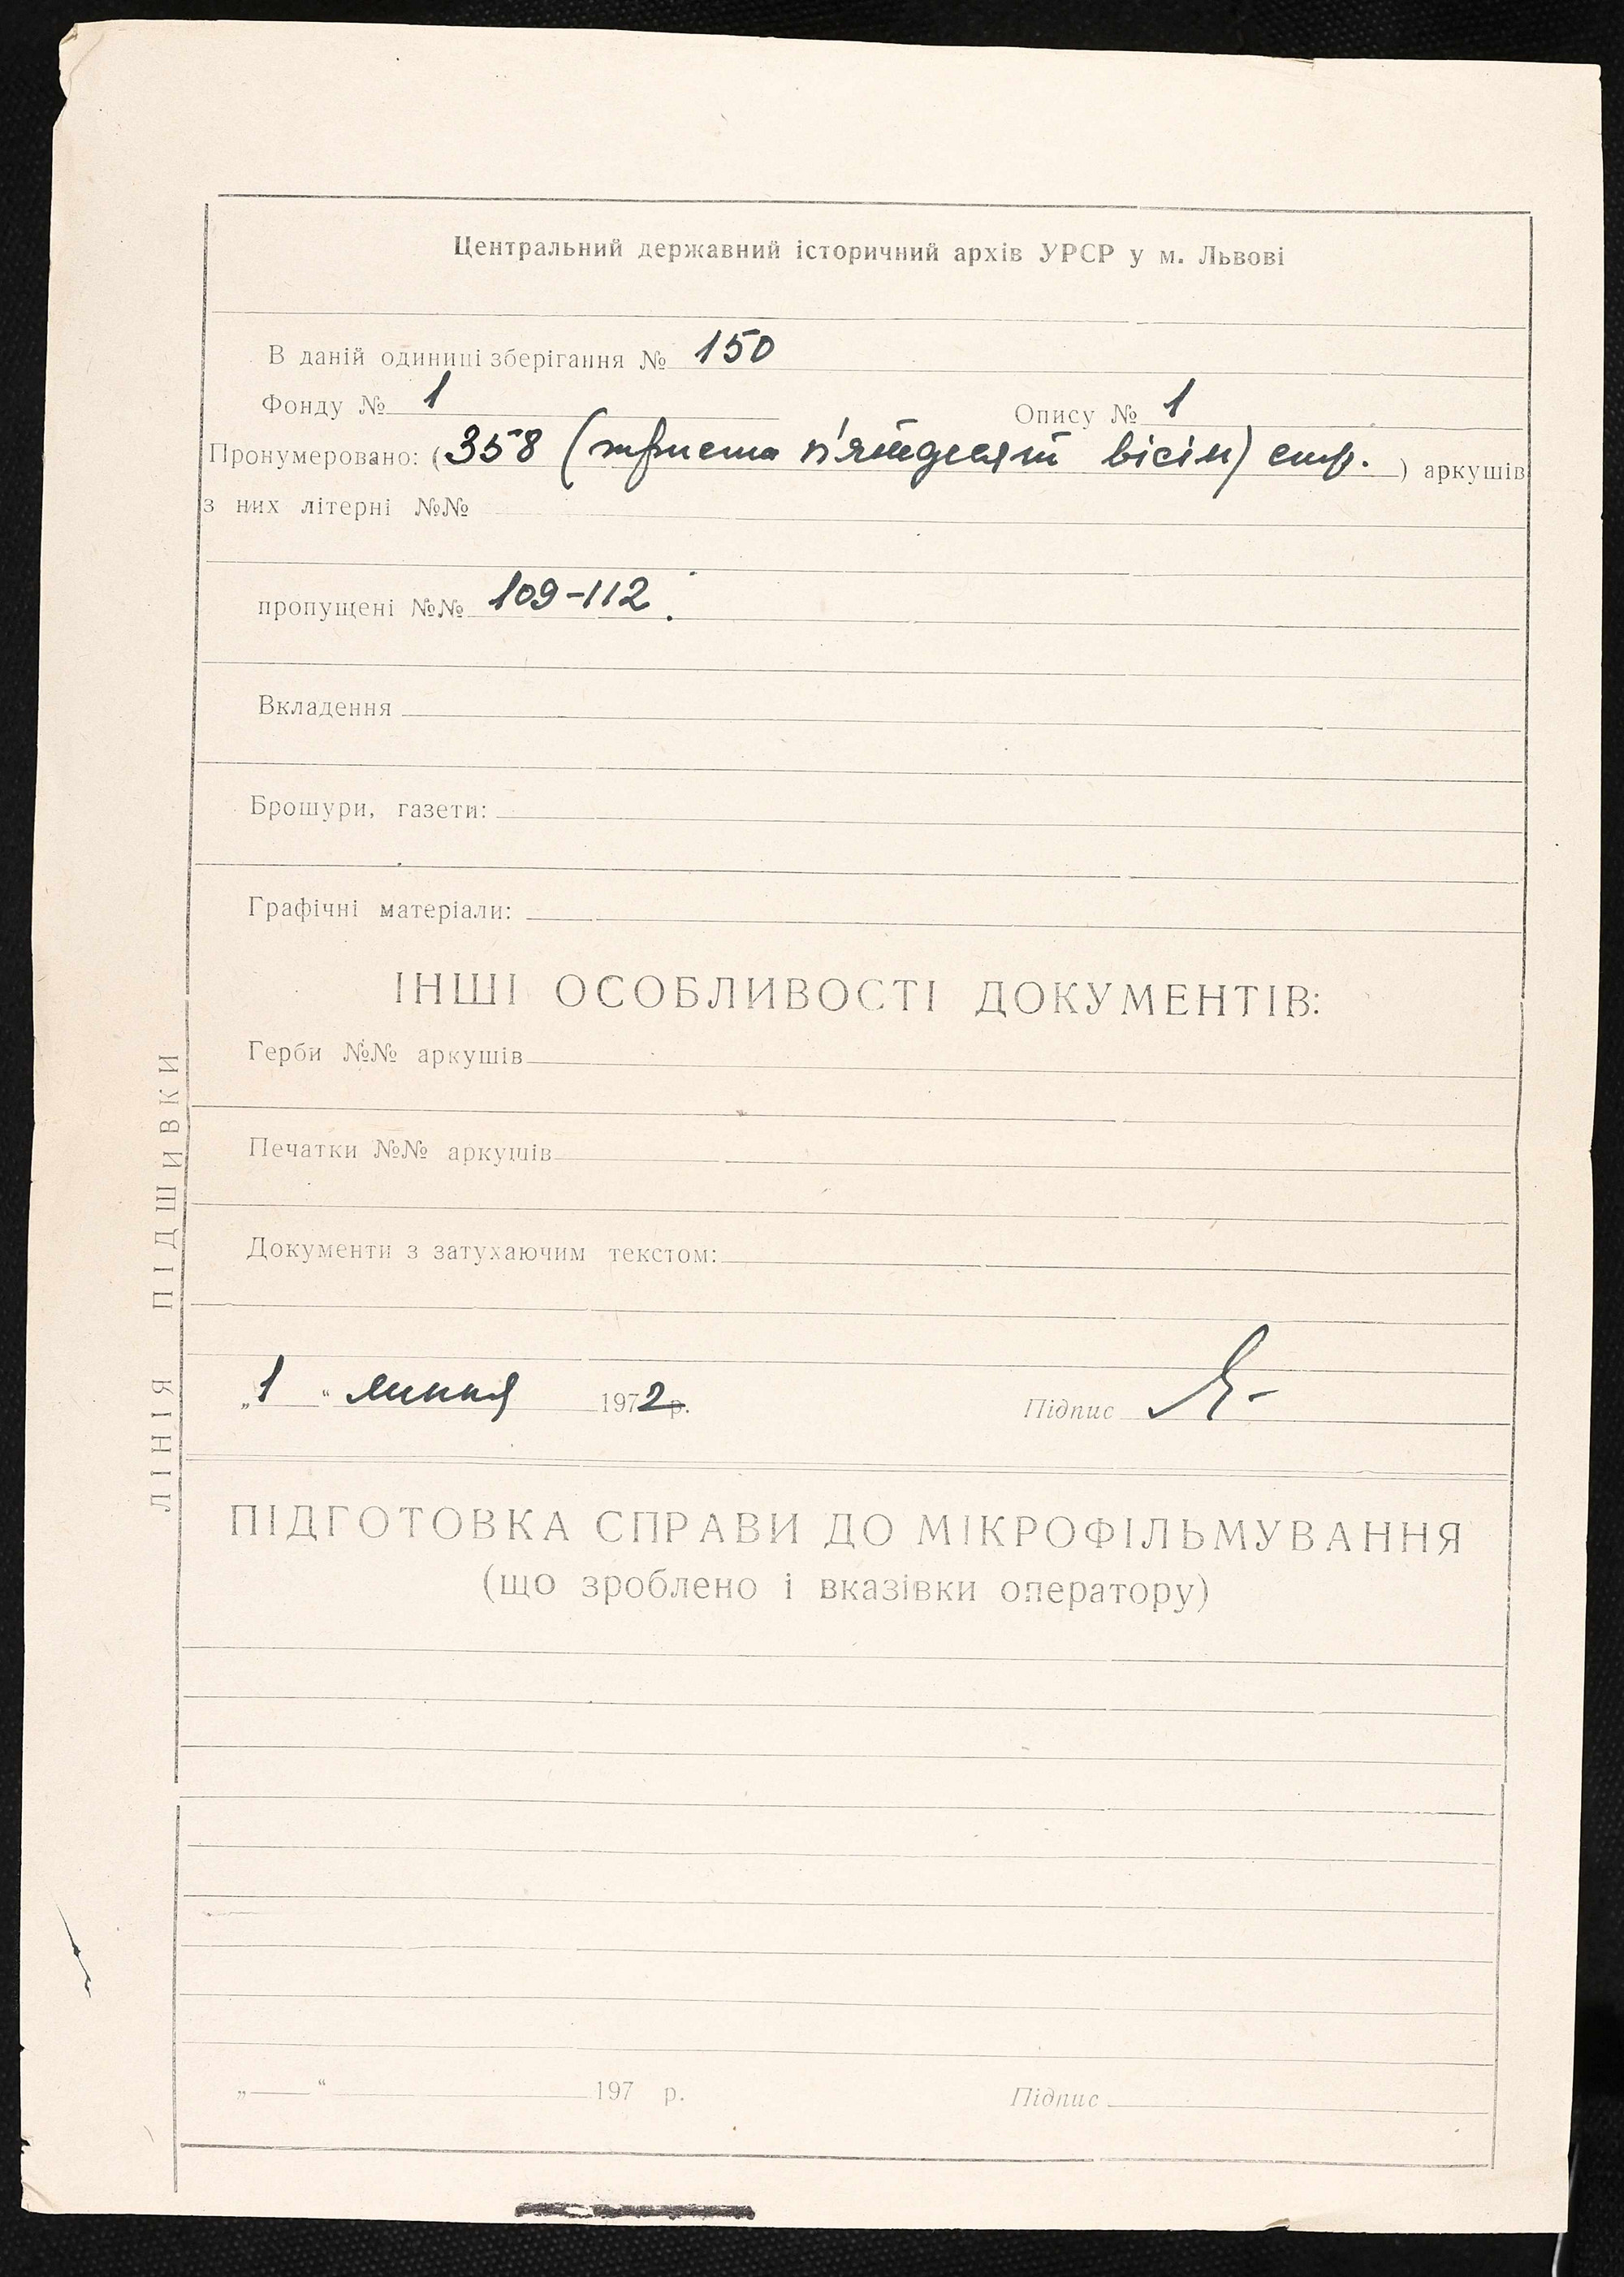 Центральний державний історичний архів УРСР у м. Львові
В даній одиниці зберігання № 150
Фонду № 1 Опису № 1
Пронумеровано: (358 (триста п'ятдесят вісім) стор. ) аркушів
з них літерні №№
пропущені №№ 109-112.
Вкладення
Брошури, газети:
Графічні матеріали:
ІНШІ ОСОБЛИВОСТІ ДОКУМЕНТІВ:
Герби №№ аркушів
Печатки №№ аркушів
Документи з затухаючим текстом:
„1“ липня 1972 р. Підпис
ПІДГОТОВКА СПРАВИ ДО МІКРОФІЛЬМУВАННЯ
(що зроблено і вказівки оператору)
„ “ 197 р. Підпис
ЛІНІЯ ПІДШИВКИ